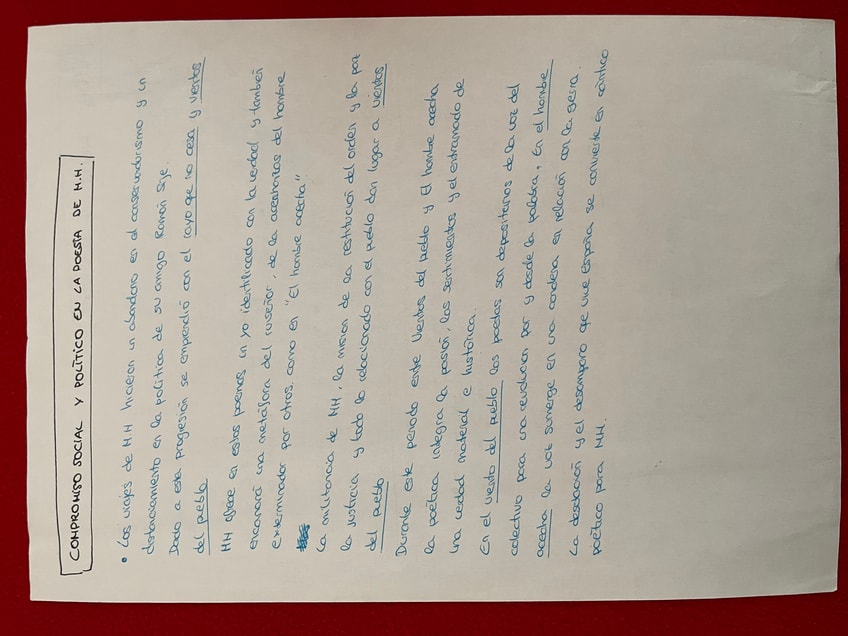 COMPROMISO SOCIAL Y POLÍTICO EN LA POESÍA DE M.H.
• Los viajes de M.H hicieron un abandono en el conservadurismo y un
distanciamiento en la política de su amigo Ramón Sije.
Dado a esta progresión se emprendió con el rayo que no cesa y vientos
del pueblo
MH ofrece en estos poemas un yo identificado con la verdad y también
encarnará una metáfora del ruiseñor, de la acechanzas del hombre
exterminador por otros, como en "El hombre acecha"
La militancia de MH, la misión de la restitución del orden y la paz
la justicia y todo lo relacionado con el pueblo dan lugar a vientos
del pueblo
Durante este periodo entre Vientos del pueblo y El hombre acecha
la poética integra la pasión, los sentimientos y el entramado de
una verdad material e histórica.
En el viento del pueblo los poetas son depositarios de la voz del
colectivo para una revolución por y desde la palabra, En el hombre
acecha la voz sumerge en una condena en relación con la guerra.
La desolación y el desamparo que vive España se convierte en cántico
poético para MH.